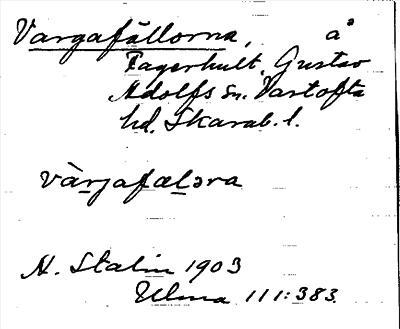 Vargafällorna, å
Fagerhult, Gustav
Adolfs sn. Vartofta
hd. Skarab. l.
vàrjafaləra
N. Stalin 1903
Ulma 111:383.